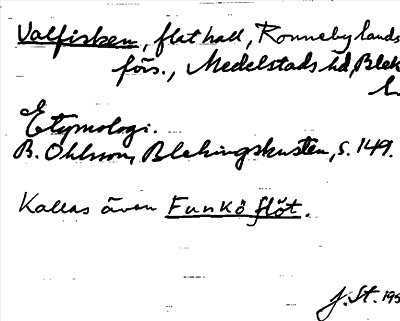 Valfisken, flathall, Ronneby lands
förs., Medelstads hd, Blek
l.
Etymologi.
B. Ohlsson, Blekingskusten, s. 149.
Kallas även Funkö flöt.
J. St. 195